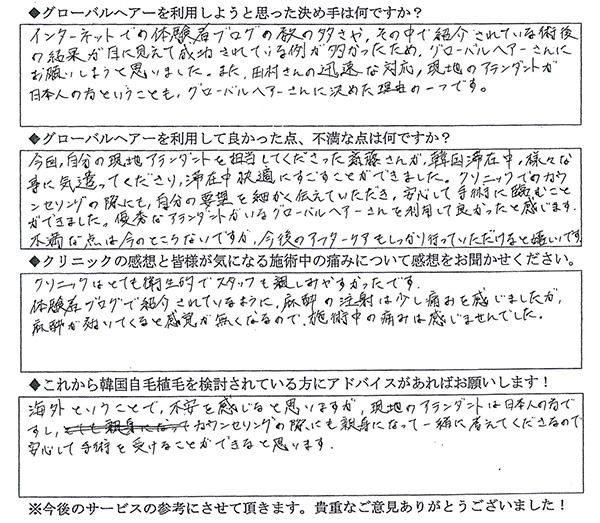 ◆グローバルヘアーを利用しようと思った決め手は何ですか?
インターネットでの体験者ブログの数の多さや、その中で紹介されている術後
の結果が目に見えて成功されている例が多かったため、グローバルヘアーさんに
お願いしようと思いました。また、田村さんの迅速な対応、現地のアテンダントが
日本人の方ということも、グローバルヘアーさんに決めた理由の一つです。
◆グローバルヘアーを利用して良かった点、不満な点は何ですか?
今回、自分の現地アテンダントを担当してくださった斎藤さんが、韓国滞在中、様々な
事に気遣ってくださり、滞在中快適にすごすことができました。クリニックでのカウ
ンセリングの際にも、自分の要望を細かく伝えていただき、安心して手術に臨むこと
ができました。優秀なアテンダントがいるグローバルヘアーさんを利用して良かったと感じます。
不満な点は今のところないですが、今後のアフターケアもしっかり行っていただけると嬉しいです。
◆クリニックの感想と皆様が気になる施術中の痛みについて感想をお聞かせください。
クリニックはとても衛生的でスタッフも親しみやすかったです。
体験者ブログで紹介されているように、麻酔の注射は少し痛みを感じましたが、
麻酔が効いてくると感覚が無くなるので、施術中の痛みは感じませんでした。
◆これから韓国自毛植毛を検討されている方にアドバイスがあればお願いします!
海外ということで、不安を感じると思いますが、現地のアテンダントは日本人の方で
すし、とても親身になってカウンセリングの際にも親身になって一緒に考えてくださるので
安心して手術を受けることができると思います。
※今後のサービスの参考にさせて頂きます。貴重なご意見ありがとうございました!